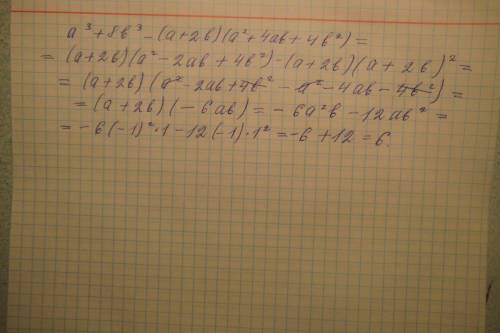 a³+8b³-(a+2b)(a²+4ab+4b²)=
=(a+2b)(a²-2ab+4b²)-(a+2b)(a+2b)²=
=(a+2b)(a²-2ab+4b²-a²-4ab-4b²)=
=(a+2b)(-6ab)=-6a²b-12ab²=
=-6(-1)²·1-12(-1)·1²=-6+12=6.